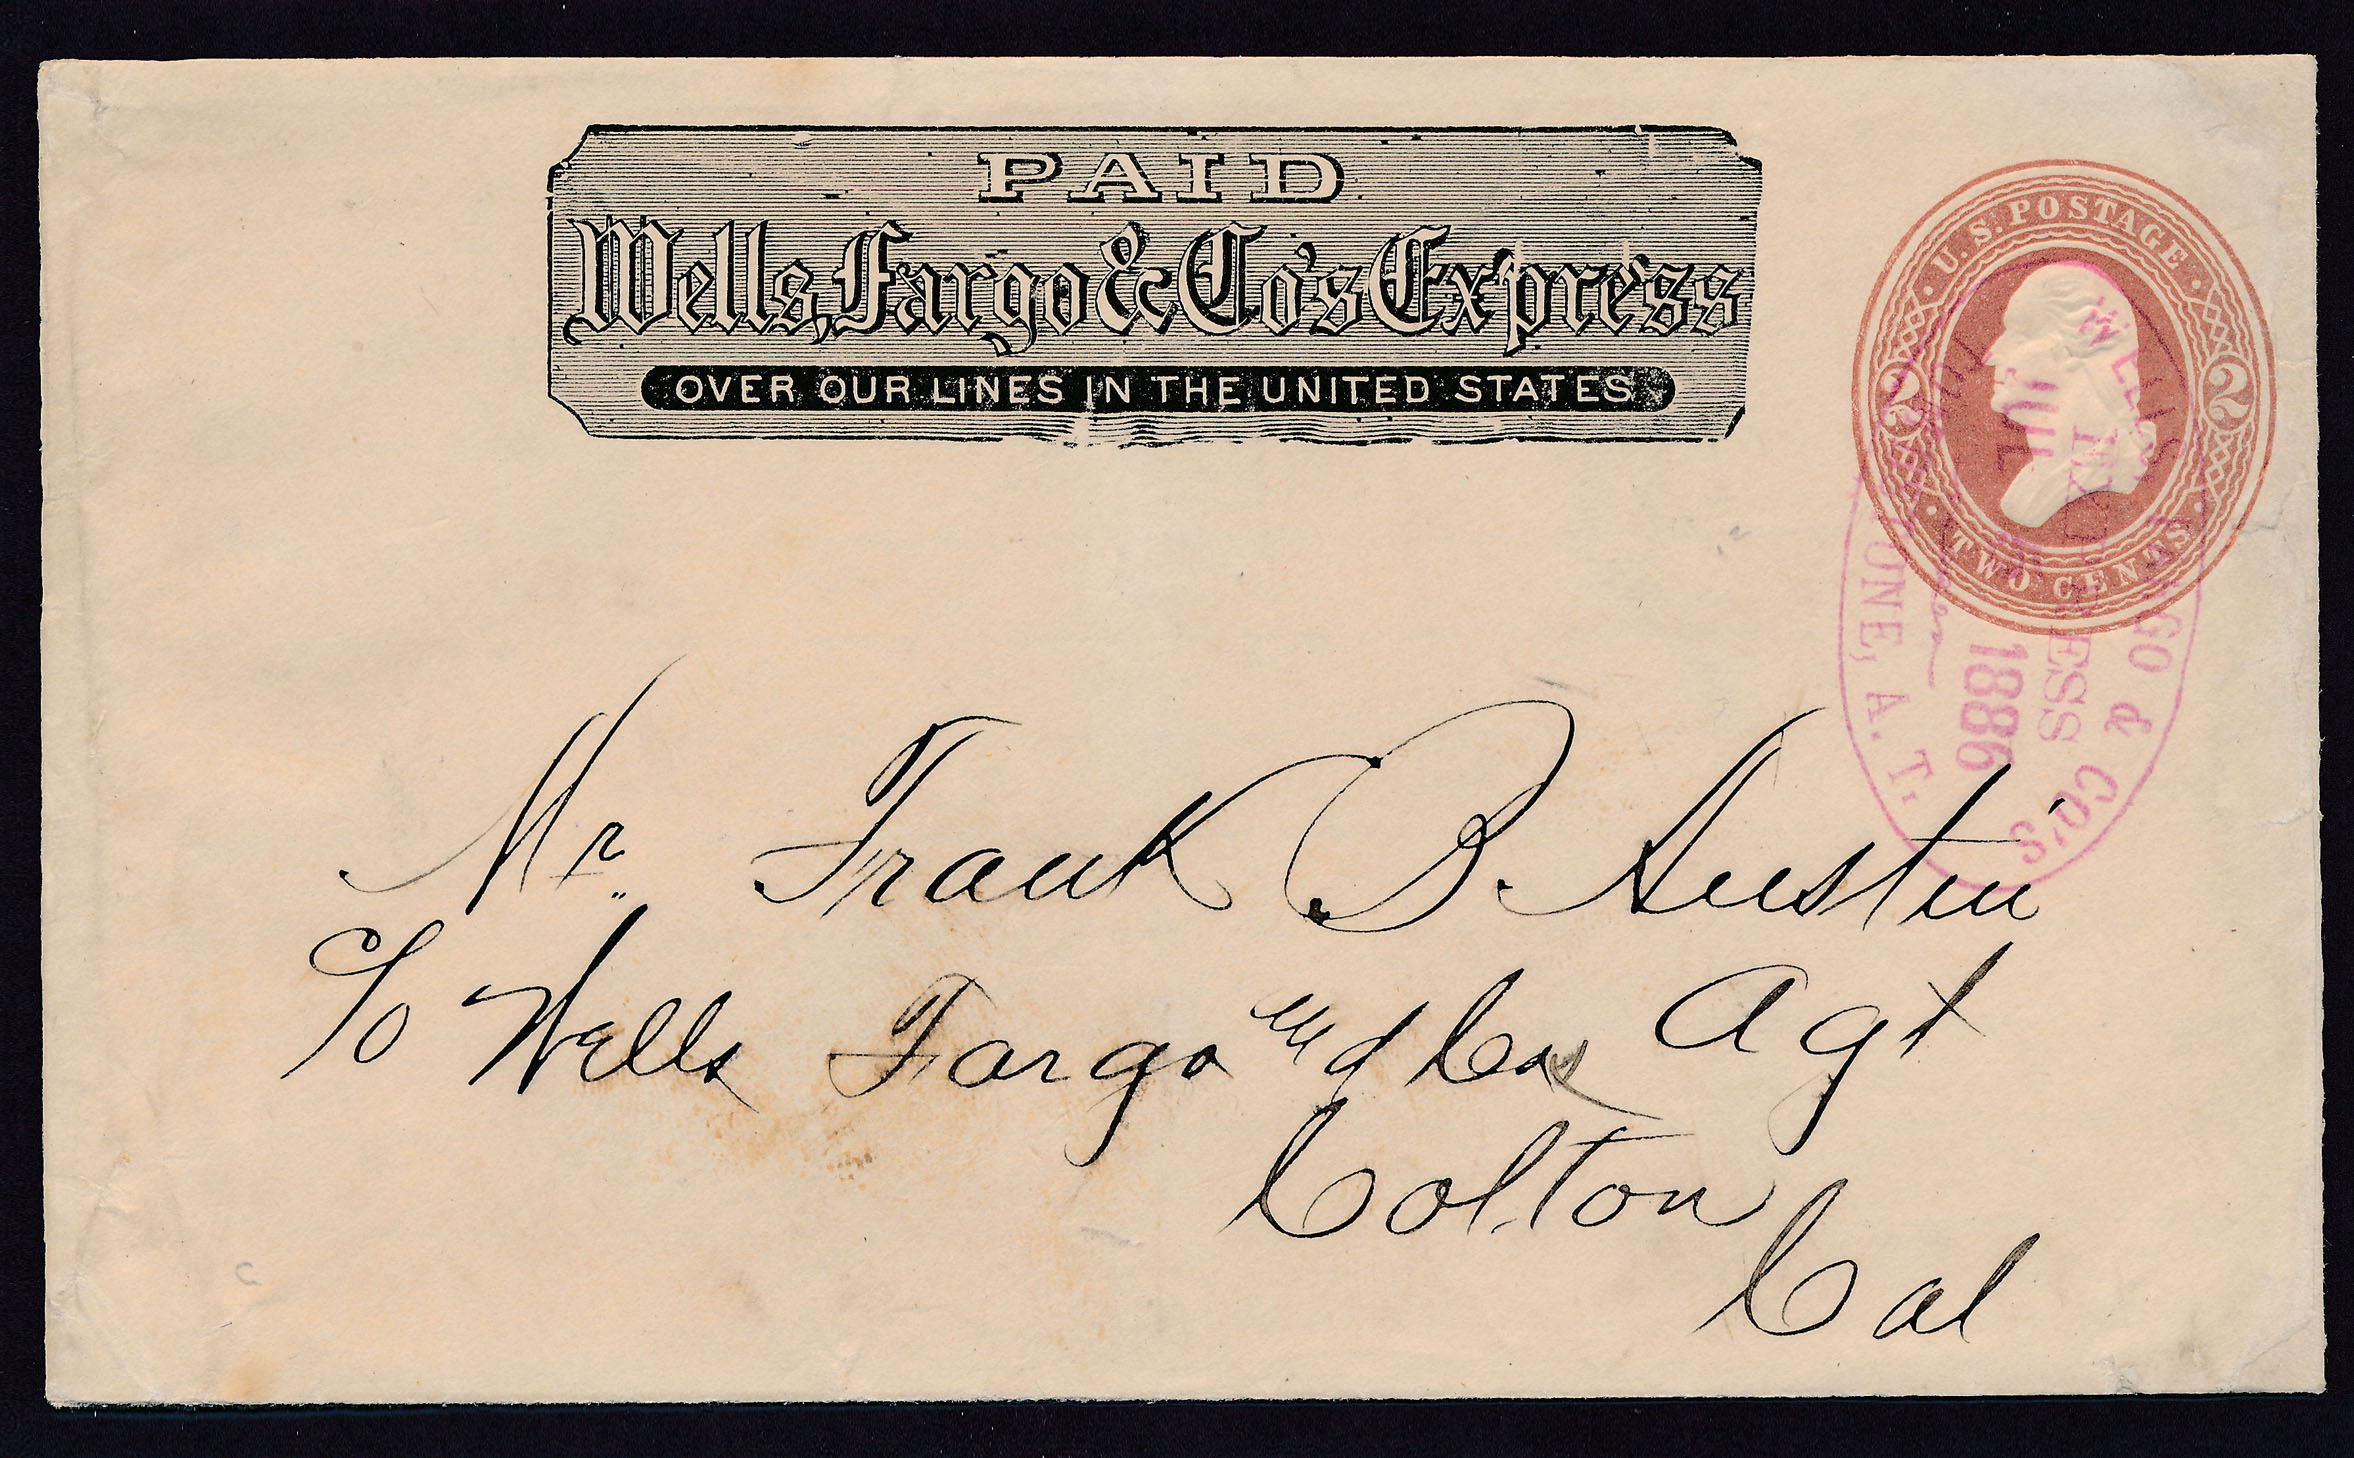 PAID
Wells, Fargo & Co's Express
OVER OUR LINES IN THE UNITED STATES
U.S. POSTAGE
2 2
TWO CENTS
WELLS & CO'S
JUL 1886
A. T.
Mr. Frank B. Austin
c/o Wells Fargo and Co Agt
Colton
Cal